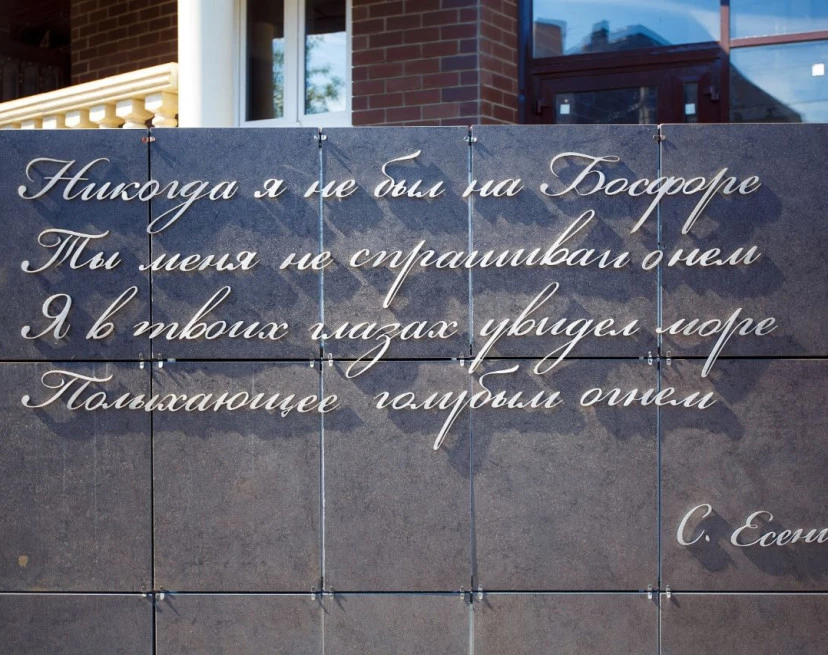 Никогда я не был на Босфоре
Ты меня не спрашиваи о нем
Я в твоих глазах увидел море
Полыхающее голубым огнем
С. Есени